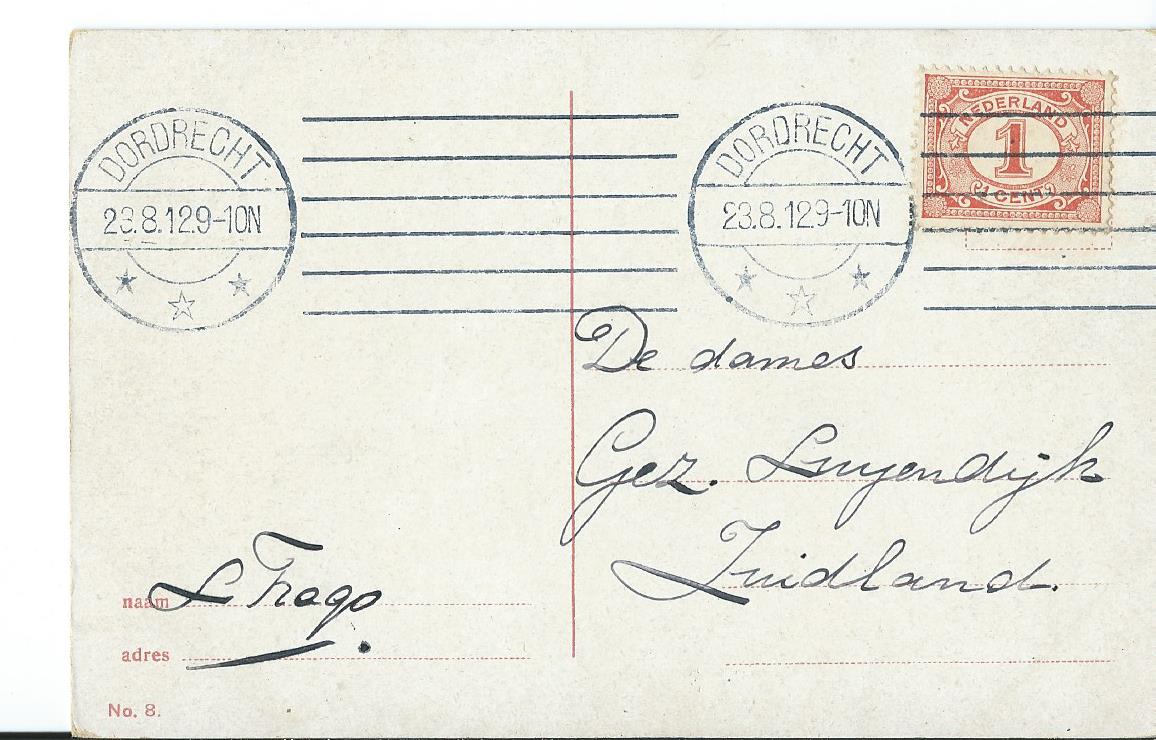 DORDRECHT
23.8.12 9-10N
DORDRECHT
23.8.12 9-10N
NEDERLAND
1
1 CENT
De dames
Gez. Luyendijk
Zuidland.
naam L Trago
adres
No. 8.